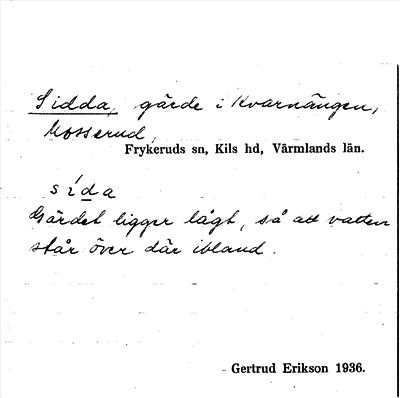 Sidda, gärde i Kvarnängen,
Mosserud,
Frykeruds sn, Kils hd, Värmlands län.
sída
Gärdet ligger lågt, så att vatten
står över där ibland.
Gertrud Erikson 1936.